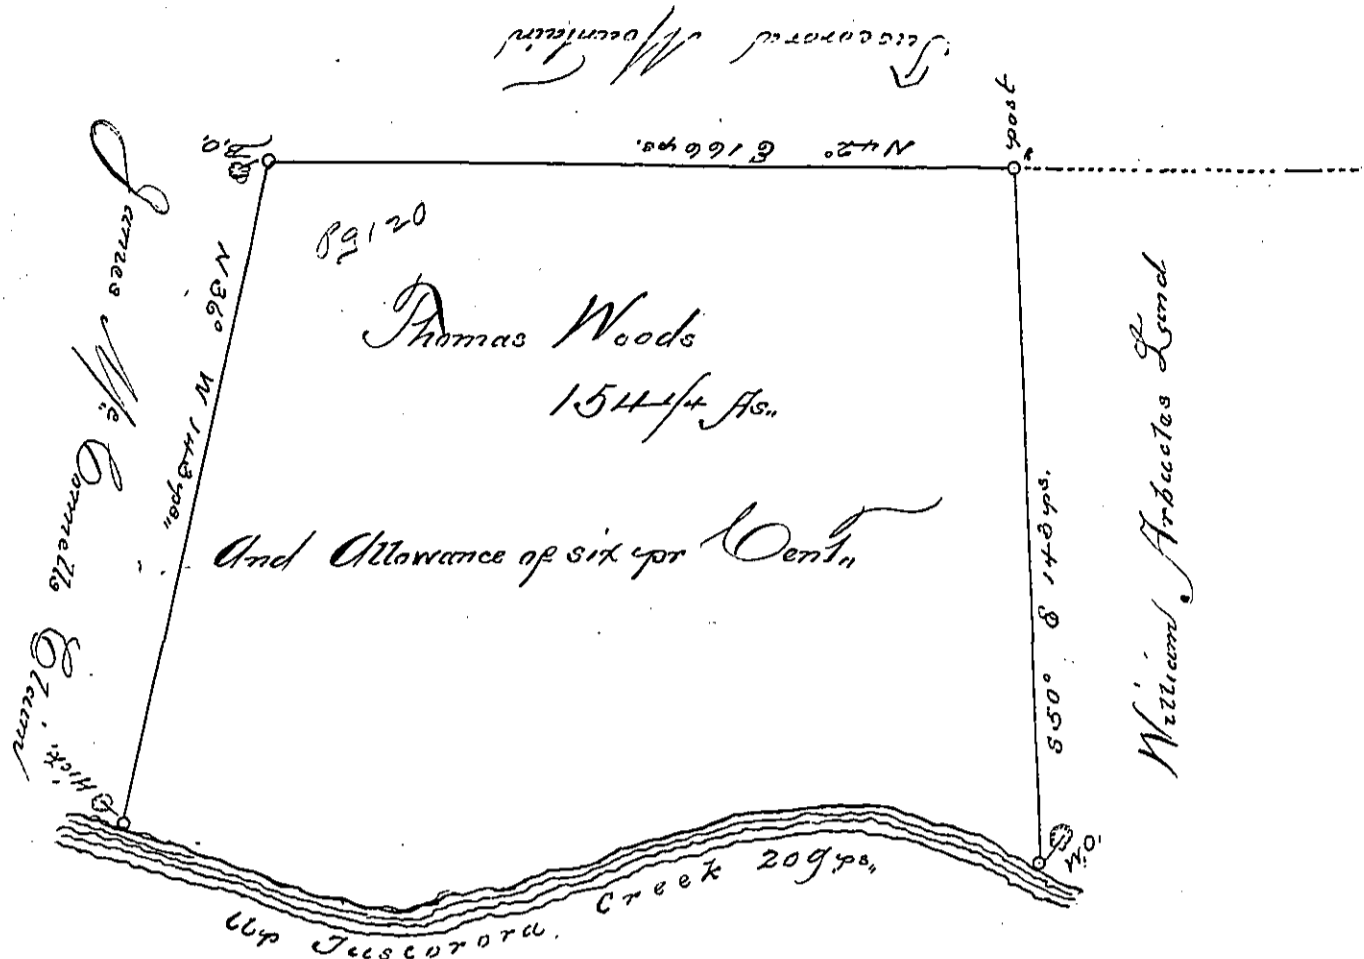 Tuscarora Mountain
post
B,O,
N 42° E 166 ps.
James Mc. Connells Claim
N 36° W 143 ps,,
pg 120
Thomas Woods
154 1/4 As,,
And Allowance of six pr Cent,,
S 50° E 148 ps.
William Arbucles Land
Hick'y
W,O,
Up Tuscarora Creek 209 ps,,